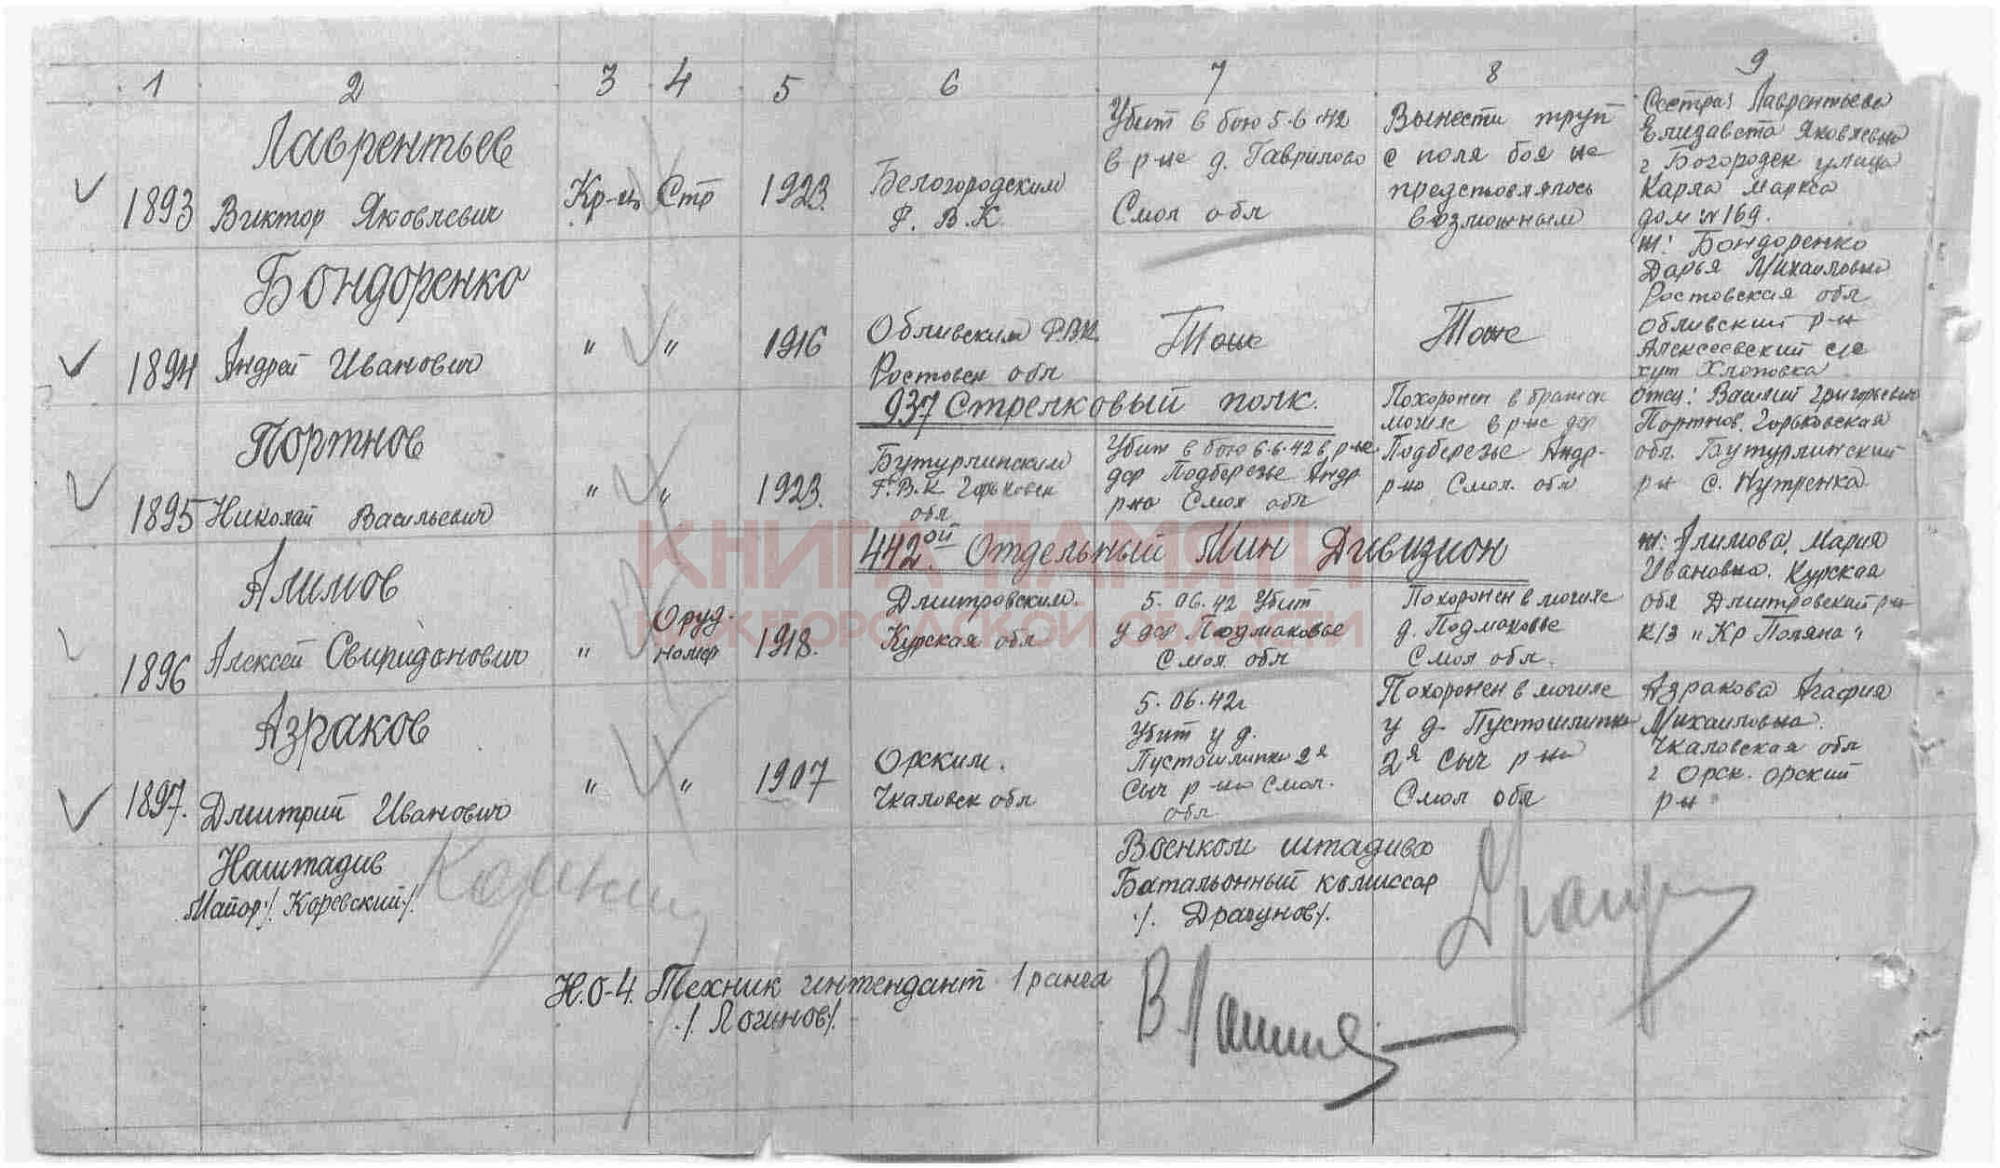 1 2 3 4 5 6 7 8 9
Лаврентьев
1893 Виктор Яковлевич
Кр-ц
Стр
1923.
Белогородским
Р. В. К.
Убит в бою 5.6.42
в р-не д. Гаврилово
Смол обл
Вынести труп
с поля боя не
представлялось
возможным
Сестра: Лаврентьева
Елизавета Яковлевна
г Богородск улица
Карла Маркса
дом № 169.
Бондоренко
1894 Андрей Иванович
" "
1916
Обливским Р.В.К.
Ростовск обл
Тоже
Тоже
ж: Бондоренко
Дарья Михайловна
Ростовская обл
Обливский р-н
Алексеевский с/с
хут Хлоповка
937 Стрелковый полк.
Портнов
1895 Николай Васильевич
" "
1923.
Бутурлинским
Р.В.К Горьковск
обл
Убит в бою 6.6.42 в р-не
дер Подберезье Андр
р-на Смол обл
Похоронен в братск
могиле в р-не дер
Подберезье Андр-
р-на Смол. обл
Отец: Василий Григорьевич
Портнов. Горьковская
обл. Бутурлинский
р-н с. Нутренка
442ой Отдельный Мин Дивизион
Алимов
1896 Алексей Свиридонович
"
Оруд.
номер
1918.
Дмитровским.
Курская обл
5.06.42 Убит
у дер. Подмаковье
Смол обл
Похоронен в могиле
д. Подмаковье
Смол обл.
ж: Алимова. Мария
Ивановна. Курская
обл Дмитровский р-н
к/з " Кр Поляна "
Азраков
1897. Дмитрий Иванович
" "
1907
Орским.
Чкаловск обл
5.06.42г
Убит у д.
Пустошлипки 2я
Сыч р-на Смол.
обл
Похоронен в могиле
у д. Пустошлипки
2я Сыч р-на
Смол обл
Азракова Агафия
Михайловна.
Чкаловская обл
г Орск. Орский
р-н
Наштадив
Майор /. Коревский /.
Военком штадива
Батальонный комиссар
/. Драгунов /.
Н.О-4. Техник интендант 1 ранга
/. Логинов /.
КНИГА ПАМЯТИ
НИЖЕГОРОДСКОЙ ОБЛАСТИ